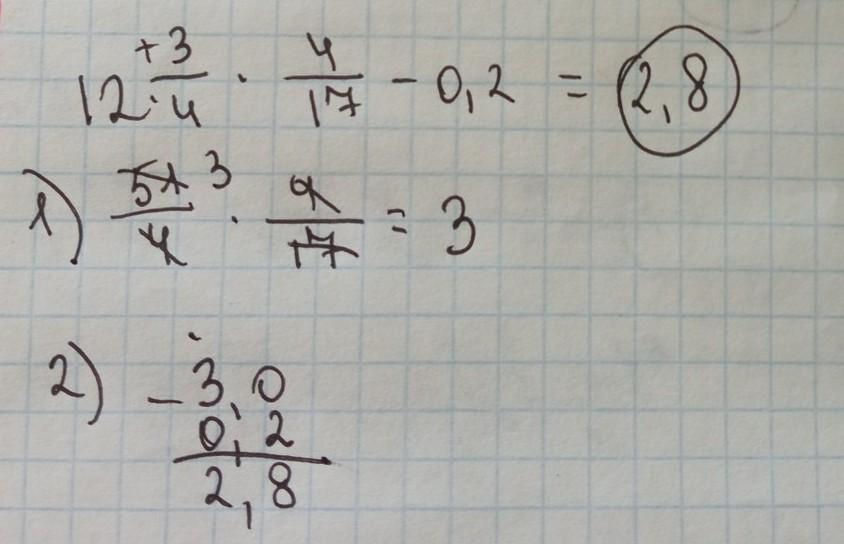 12 +3/·4 · 4/17 - 0,2 = 2,8
1) 51 3/4 · 4/17 = 3
2) - 3,0
0,2
2,8